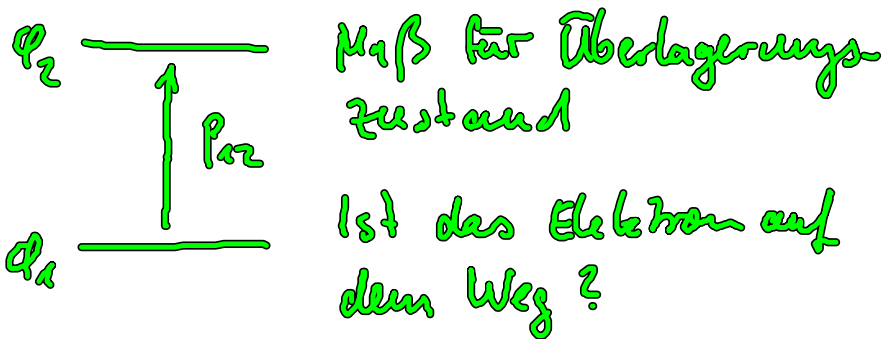 φ₂
Maß für Überlagerungs-
zustand
ρ₁₂
φ₁
Ist das Elektron auf
dem Weg?